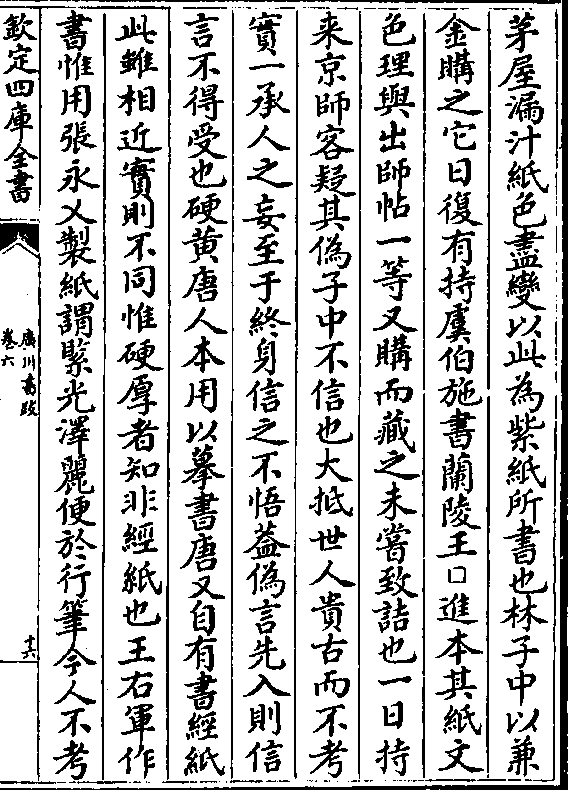 茅屋漏汁紙色盡變以此為紫紙所書也林子中以兼
金購之它日復有持虞伯施書蘭陵王口進本其紙文
色理與出師帖一等又購而藏之未嘗致詰也一日持
来京師客疑其偽子中不信也大抵世人貴古而不考
實一承人之妄至于終身信之不悟蓋偽言先入則信
言不得受也硬黃唐人本用以摹書唐又自有書經紙
此雖相近實則不同惟硬厚者知非經紙也王右軍作
書惟用張永乂製紙謂緊光澤麗便於行筆今人不考
欽定四庫全書
廣川書跋
卷六
十六